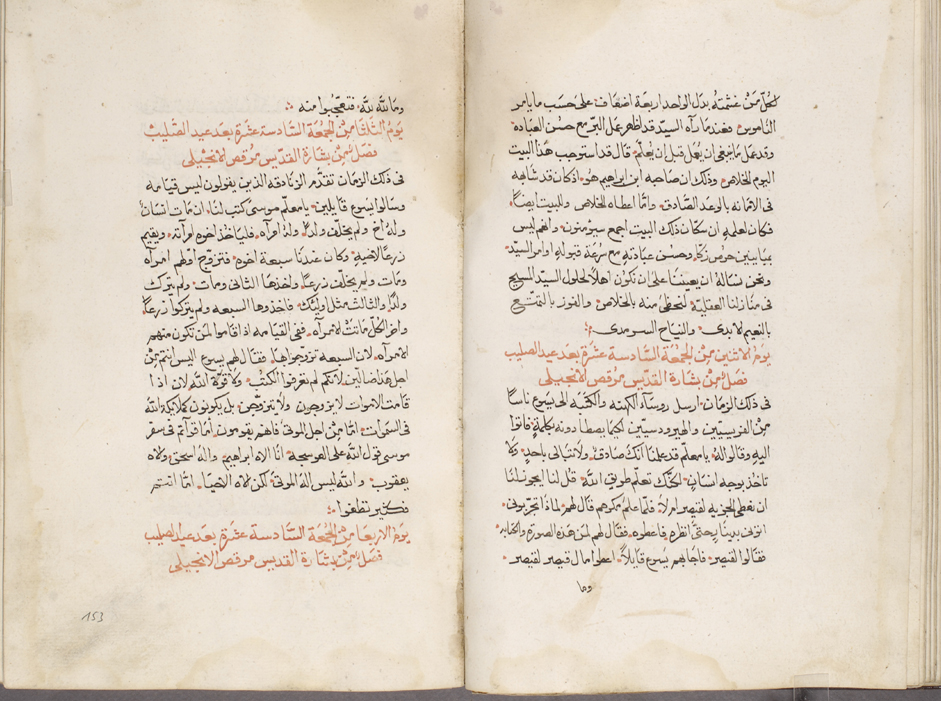 لكل من غشمته بدل الواحد اربعة اضعاف على حسب ما يامر
الناموس فعندما رآه السيد قد اظهر عمل البر مع حسن العباده
وقد عمل ما ينبغي ان يُعمل قبل ان يُعلم قال قد استوجب هذا البيت
اليوم الخلاص وذلك ان صاحبه ابن ابراهيم هو اذ كان قد شابهه
في الامانه بالوعد الصادق وانما اعطاه الخلاص والبيت ايضاً
فكان لعلمهِ ان سكان ذلك البيت اجمع سيرمنون وانهم ليس
بمباينين حرص زكا وحسن عبادتهِ مع سرعة قبولهِ اوامر السيد
ونحن نساله ان يعيننا على ان نكون اهلاً لحلول السيد المسيح
في منازلنا العقلية لنحظى منه بالخلاص والفوز بالتمتع
بالنعيم الابدى والنياح السرمدى
يوم الاثنين من الجمعة السادسة عشرة بعد عيد الصليب
فصل من بشارة القديس مرقص الانجيلي
في ذلك الزمان ارسل روسآء الكهنه والكتبه الى يسوع ناساً
من الفريسيين والهيرودسيين لكيما يصطادونه بكلمةٍ فاتوا
اليهِ وقالوا له يا معلم قد علمنا انك صادق ولا تبالى باحدٍ ولا
تاخذ بوجه انسانٍ لكنك تعلّم طريق الله قل لنا ايجوز لنا
ان نعطي الجزيه لقيصر ام لا فلما علم مكرهم قال لهم لماذا تجربونى
اتونى بدينارٍ حتى انظره فاعطوه فقال لهم لمن هذه الصورة والكتابه
فقالوا لقيصر فاجابهم يسوع قايلاً اعطوا مال قيصر لقيصر
وما
وما لله لله فتعجبوا منه
يوم الثلاثا من الجمعة السادسة عشرة بعد عيد الصليب
فصل من بشارة القديس مرقص الانجيلي
في ذلك الزمان تقدم الزنادقه الذين يقولون ليس قيامه
وسالوا يسوع قايلين يا معلم موسى كتب لنا ان مات انسان
وله اخ ولم يخلف ولداً وله امرآه فلياخذ اخوه امرآته ويقيم
زرعاً لاخيهِ وكان عندنا سبعة اخوه فتزوج اولهم امرآه
ومات ولم يخلف زرعاً واخذها الثانى ومات ولم يترك
ولداً والثالث مثل اوليك فاخذوها السبعه ولم يتركوا زرعاً
واخر الكل ماتت الامرآه ففي القيامه اذا قاموا لمن تكون منهم
الامرآه لان السبعه تزوجوها فقال لهم يسوع اليس انتم من
اجل هذا ضالين لانكم لم تعرفوا الكتب ولا قوة الله لان اذا
قامت الاموات لا يزوجون ولا يتزوجن بل يكونون كملايكة الله
في السموات امّا من اجل الموتى فانهم يقومون أما قرآتم في سفر
موسى قول الله على العوسجه انا الاه ابراهيم واله اسحق والاه
يعقوب والله ليس اله الموتى لكن لاه الاحيا امّا انتم
فكثير تطغوا
يوم الاربعا من الجمعة السادسة عشرة بعد عيد الصليب
فصل من بشارة القديس مرقص الانجيلي
153